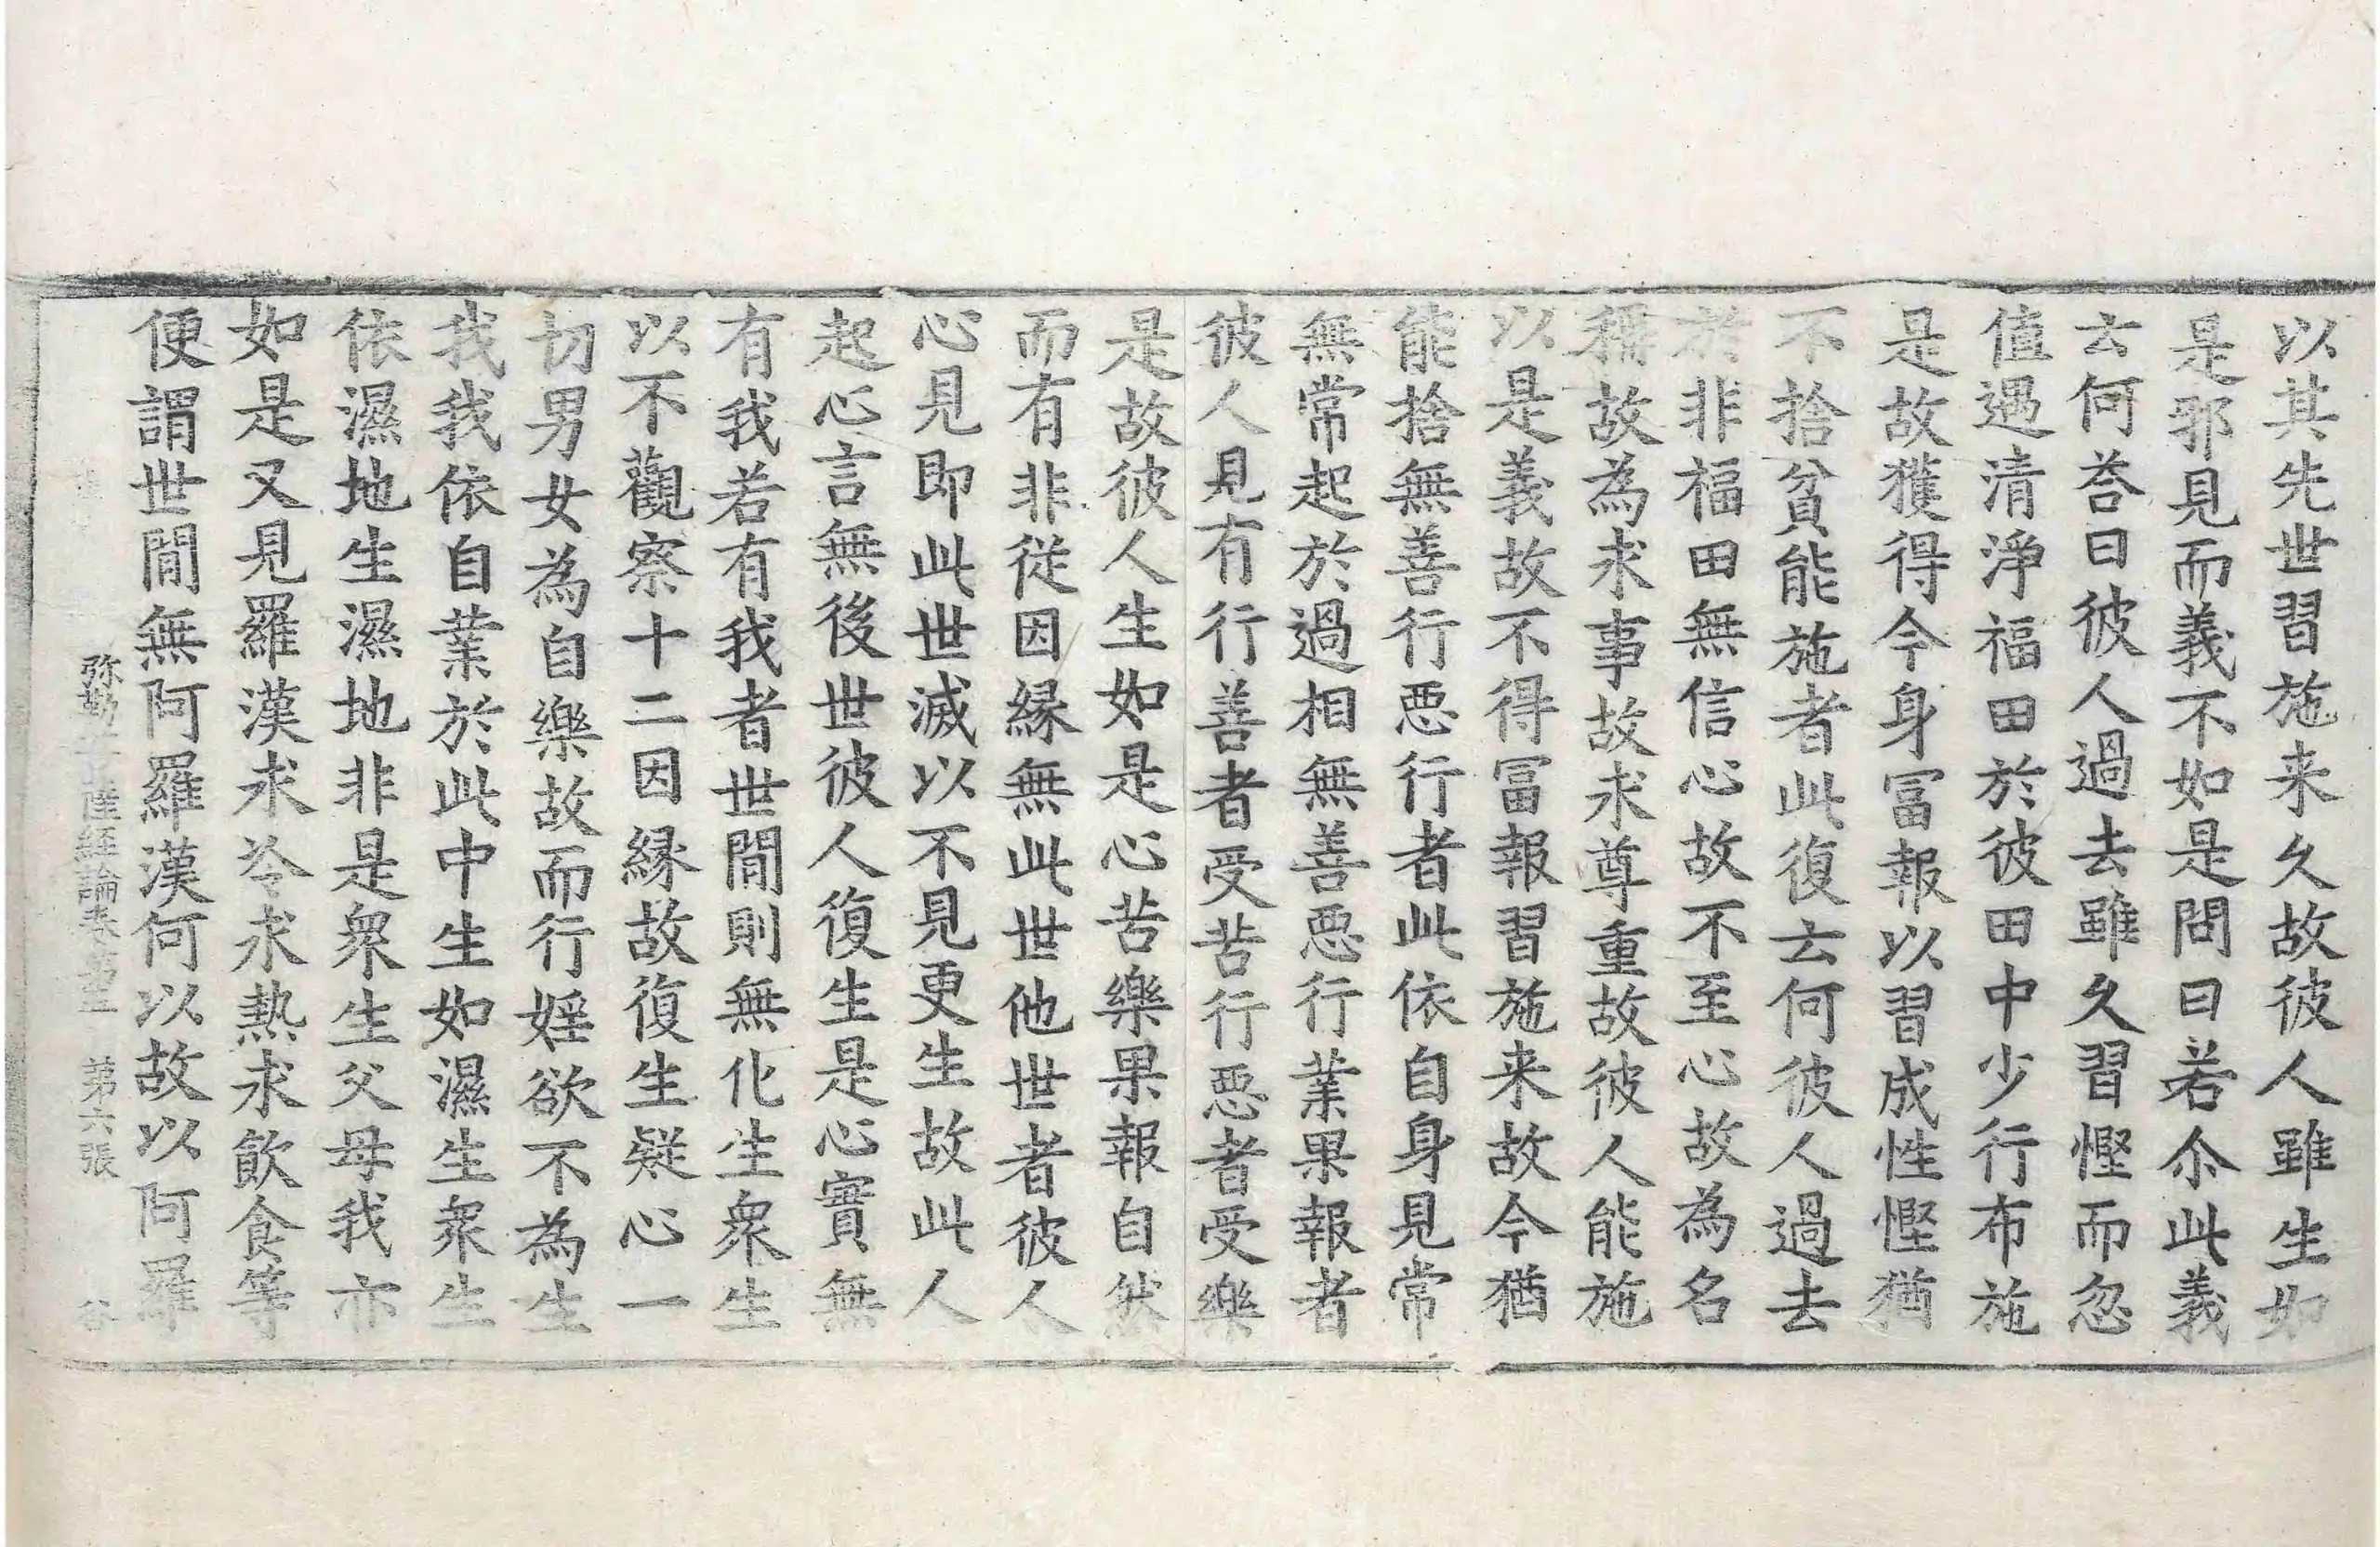 以其先世習施来久故彼人雖生如
是邪見而義不如是問曰若尒此義
云何荅曰彼人過去雖久習慳而忽
值遇清淨福田於彼田中少行布施
是故獲得今身冨報以習成性慳猶
不捨貧能施者此復云何彼人過去
於非福田無信心故不至心故為名
稱故為求事故求尊重故彼人能施
以是義故不得冨報習施来故今猶
能捨無善行惡行者此依自身見常
無常起於過相無善惡行業果報者
彼人見有行善者受苦行惡者受樂
是故彼人生如是心苦樂果報自然
而有非從因緣無此世他世者彼人
心見即此世滅以不見更生故此人
起心言無後世彼人復生是心實無
有我若有我者世間則無化生衆生
以不觀察十二因緣故復生疑心一
切男女為自樂故而行婬欲不為生
我我依自業於此中生如濕生衆生
依濕地生濕地非是衆生父母我亦
如是又見羅漢求冷求熱求飲食等
便謂世間無阿羅漢何以故以阿羅
弥勒菩薩經論卷第三 第六張